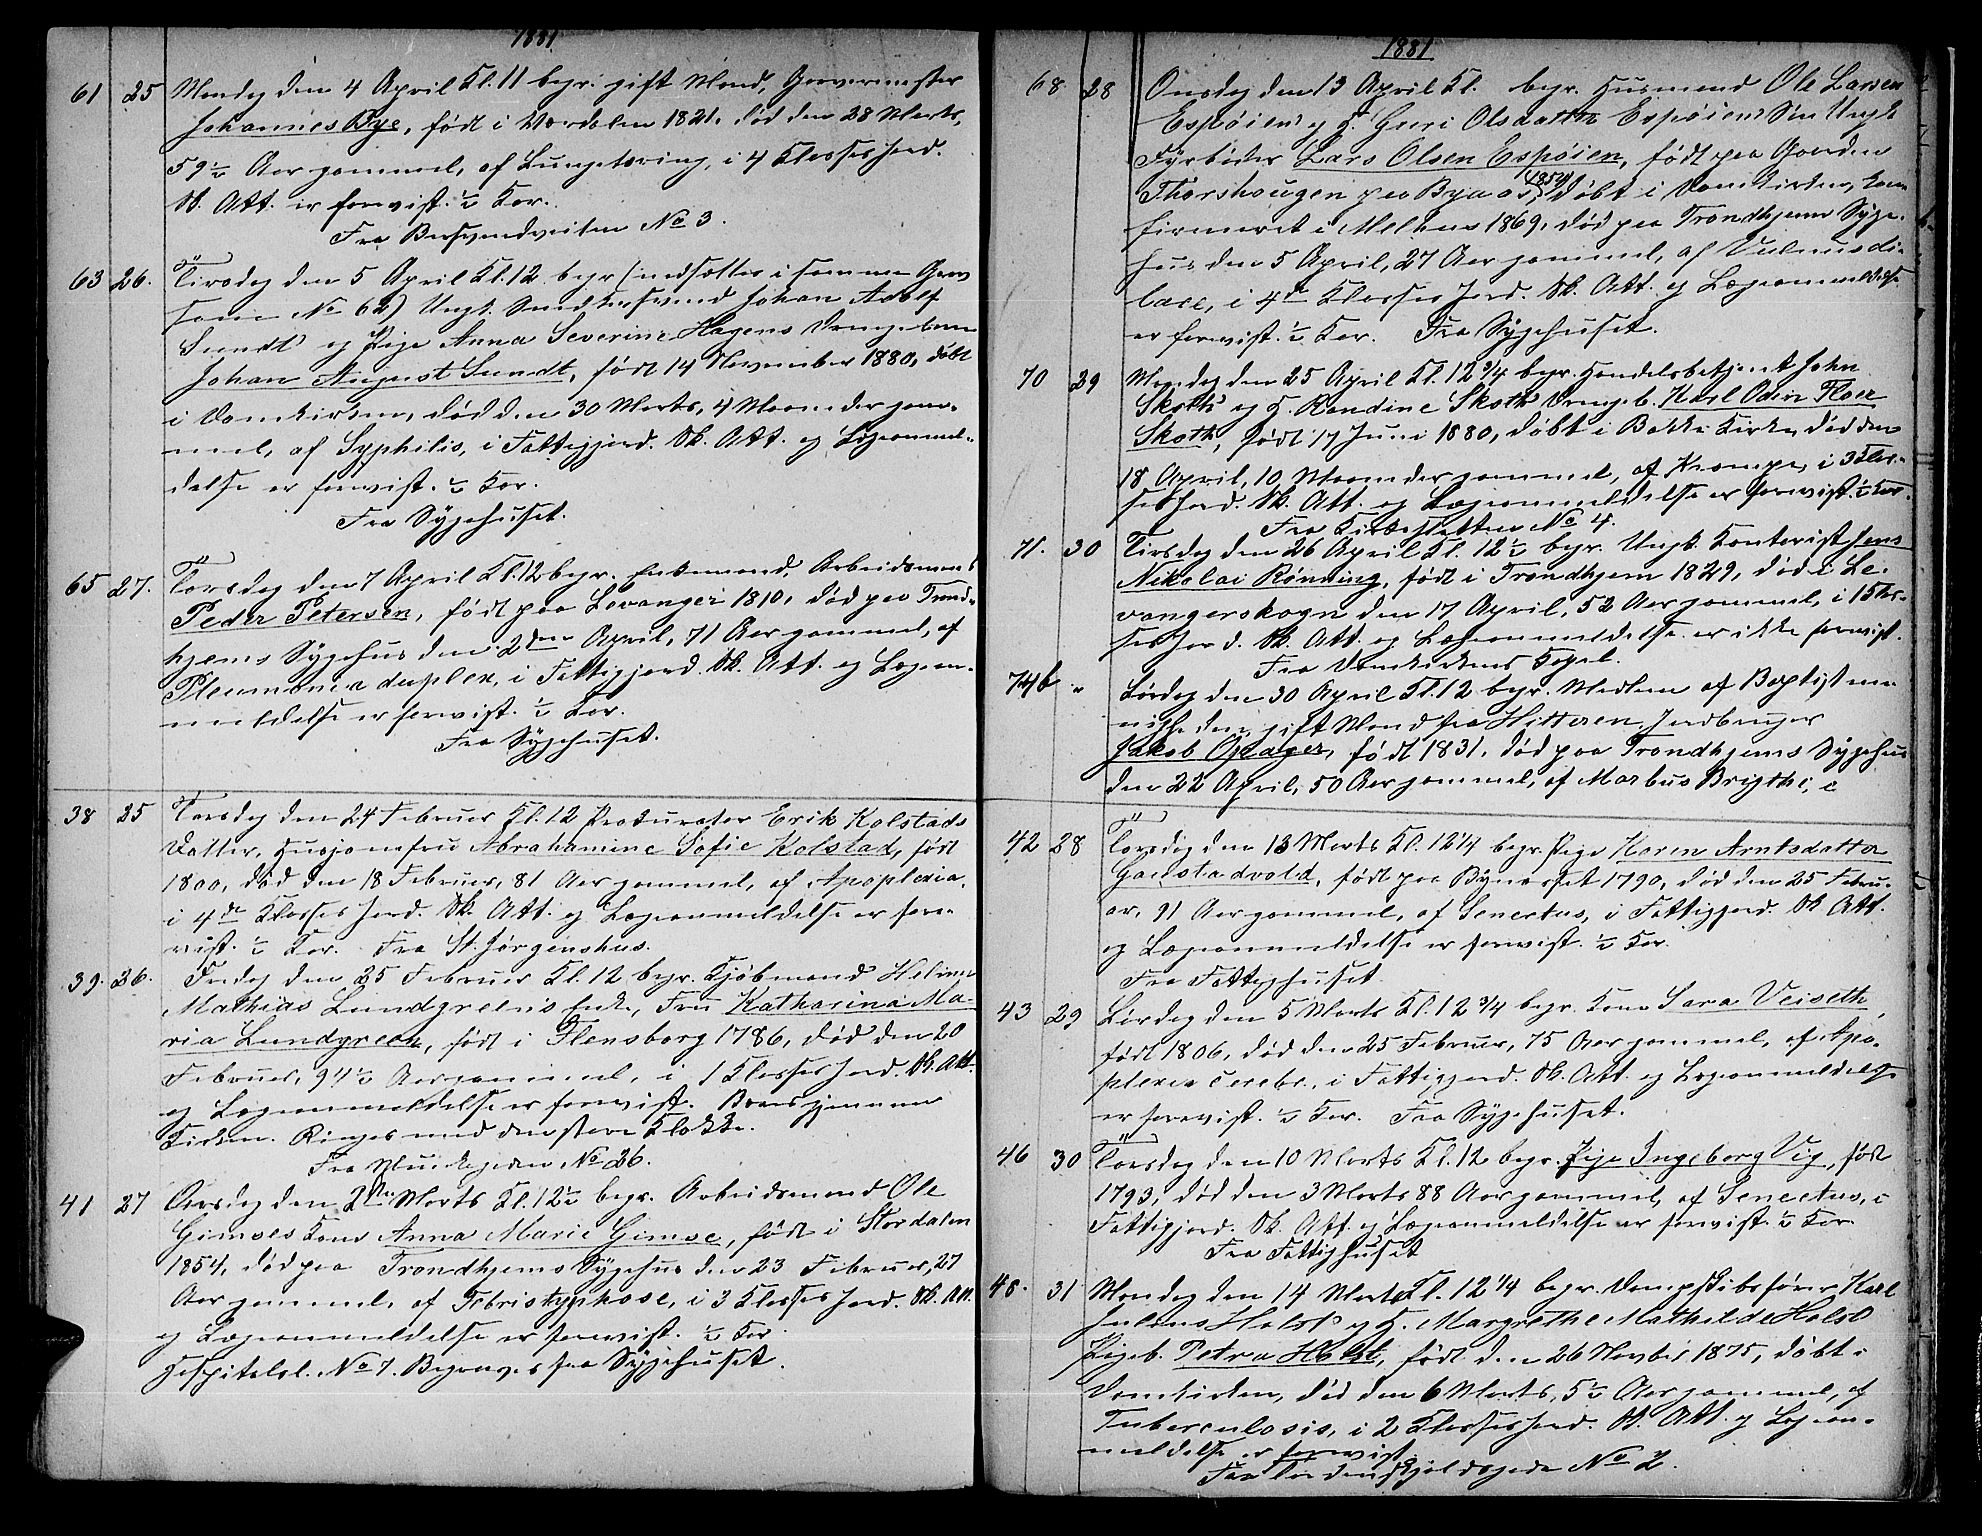 1881
61 25 Mandag den 4 April Kl. 11 begr. gift Mand, Garvermester
Johannes Bye, født i Værdalen 1821, død den 28 Marts,
59½ Aar gammel, af Lungetæring, i 4 Klasses Jord.
Sk. Att. er forevist. ½ Kor.
Fra Bersvendveiten No 3.
63 26. Tirsdag den 5 April Kl. 12 begr (nedsættes i samme Grav
som No 62) Ungk. Smedsvend Johan Adolf
Sundts og Pige Anna Severine Hagens Drengebarn
Johan August Sundt, født 14 November 1880, døbt
i Domkirken, død den 30 Marts, 4 Maaneder gam-
mel, af Syphilis, i Fattigjord. Sk. Att. og Lægeanmel-
delse er forevist. ½ Kor.
Fra Sygehuset.
65 27. Torsdag den 7 April Kl. 12 begr. Enkemand, Arbeidsmand
Peder Petersen, født paa Levanger 1810, død paa Trond-
hjems Sygehus den 2den April, 71 Aar gammel, af
Pleumonia duplex, i Fattigjord. Sk. Att. og Lægean-
meldelse er forevist. ½ Kor.
Fra Sygehuset.
38 25 Torsdag den 24 Februar Kl. 12 Prokurator Erik Kolstads
Datter, Husjomfru Abrahamine Sofie Kolstad, født
1800, død den 18 Februar, 81 Aar gammel, af Apoplexia,
i 4de Klasses Jord. Sk. Att. og Lægeanmeldelse er fore-
vist. ½ Kor. Fra St. Jørgenshus.
39. 26. Fredag den 25 Februar Kl. 12 begr. Kjøbmand
Mathias Lundgreens Enke, Fru Katharina Ma-
ria Lundgreen, født i Flensborg 1786, død den 20
Februar, 94½ Aar gammel, i 1 Klasses Jord. Sk. Att.
og Lægeanmeldelse er forevist. Bæres gjennem
Kirken. Ringes med den store Klokke.
Fra Munkegaden No 26.
41 27 Onsdag den 2den Marts Kl. 12½ begr. Arbeidsmand Ole
Gimses Kone Anna Marie Gimse, født i Stordalen
1854, død paa Trondhjems Sygehus den 23 Februar, 27
Aar gammel, af Febris typhose, i 3 Klasses Jord. Sk. Att.
og Lægeanmeldelse er forevist. ½ Kor.
Hospitalsl. No 7. Begraves fra Sygehuset.
1881
68. 28 Onsdag den 13 April Kl. begr. Husmand Ole Larsen
Espøiens og H. Guri Olsdatter Espøiens Søn Ungk.
Fyrbøder Lars Olsen Espøien, født paa Gaarden
Thorshaugen paa Byaas 1854, døbt i Domkirken, kon-
firmeret i Melhus 1869, død paa Trondhjems Syge-
hus den 5 April, 27 Aar gammel, af Vulnus di-
lace, i 4de Klasses Jord. Sk. Att. og Lægeanmeldelse
er forevist. ½ Kor. Fra Sygehuset.
70 29 Mandag den 25 April Kl. 12¾ begr. Handelsbetjent John
Skoths og H. Randine Skoths Drengeb. Karl Odin Floer
Skoth, født 17 Juni 1880, døbt i Bakke Kirke, død den
18 April, 10 Maaneder gammel, af Krampe, i 3 Klas-
ses Jord. Sk. Att. og Lægeanmeldelse er forevist. ½ Kor.
Fra Kirkesletten No 4.
71. 30 Tirsdag den 26 April Kl. 12½ begr. Ungk. Kontorist Jens
Nikolai Rønning, født i Trondhjem 1829, død i Le-
vangerskogn den 17 April, 52 Aar gammel, i 1 Klas-
ses Jord. Sk. Att. og Lægeanmeldelse er ikke forevist.
Fra Domkirkens Kapel.
74b " Lørdag den 30 April Kl. 12 begr. Medlem af Baptistme-
nigheden, gift Mand fra Hitteren, Indbygger
Jakob Opager, født 1831, død paa Trondhjems Sygehus
den 22 April, 50 Aar gammel, af Morbus Brigthi, i
42 28 Torsdag den 13 Marts Kl. 12¼ begr. Pige Karen Arntsdatter
Gaustadvold, født paa Bynæsset 1790, død den 25 Febru-
ar, 91 Aar gammel, af Senectus, i Fattigjord. Sk. Att.
og Lægeanmeldelse er forevist. ½ Kor.
Fra Fattighuset.
43 29 Lørdag den 5 Marts Kl. 12¾ begr. Kone Sara Veiseth,
født 1806, død den 25 Februar, 75 Aar gammel, af Apo-
plexia Cerebr., i Fattigjord. Sk. Att. og Lægeanmeldelse
er forevist. ½ Kor. Fra Sygehuset.
46 30 Torsdag den 10 Marts Kl. 12 begr. Pige Ingeborg Vig, født
1793, død den 3 Marts 88 Aar gammel, af Senectus, i
Fattigjord. Sk. Att. og Lægeanmeldelse er forevist. ½ Kor.
Fra Fattighuset
48. 31 Mandag den 14 Marts Kl. 12¼ begr. Dampskibsfører Karl
Julius Holst's og H. Margrethe Mathilde Holst
Pigeb. Petra Holst, født den 26 Novbr 1875, døbt i
Domkirken, død den 6 Marts, 5½ Aar gammel, af
Tuberculosis, i 2 Klasses Jord. Sk. Att. og Lægean-
meldelse er forevist.
Fra Tordenskjoldsgade No 2.